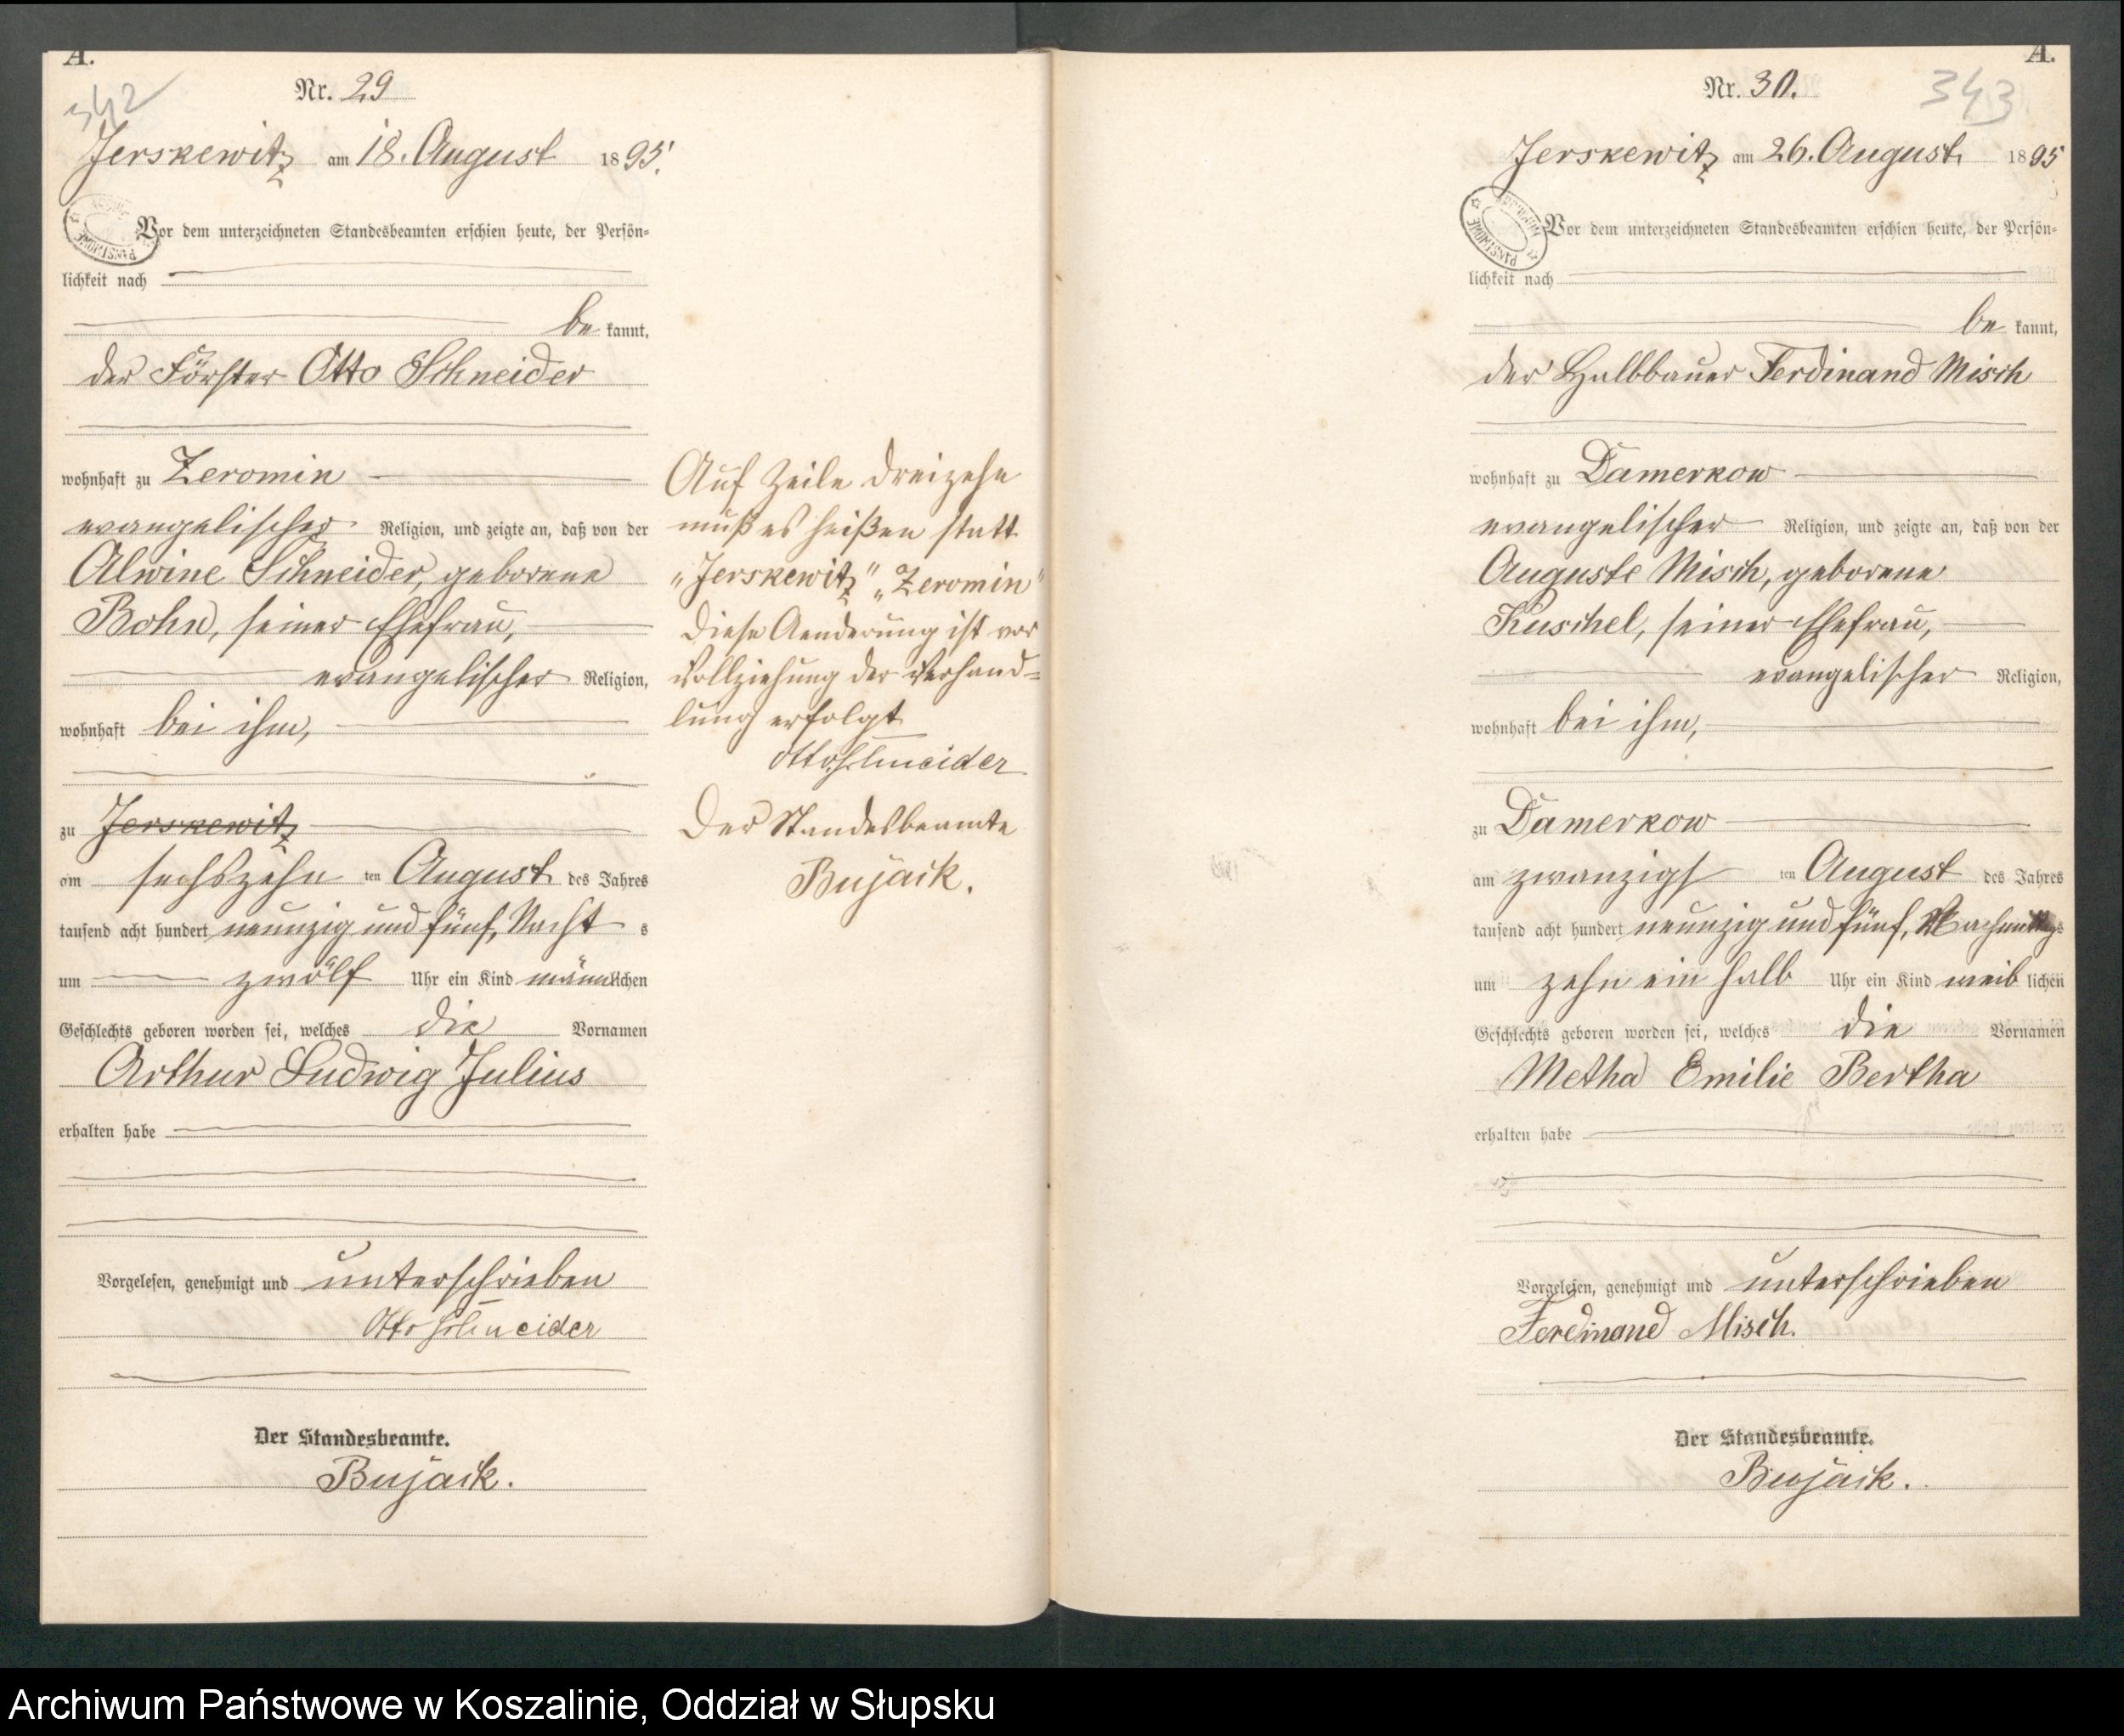 A.
342
Nr. 29
Jerskewitz am 18. August 1895.
Vor dem unterzeichneten Standesbeamten erschien heute, der Persön-
lichkeit nach
be kannt,
der Förster Otto Schneider
wohnhaft zu Zeromin
evangelischer Religion, und zeigte an, daß von der
Alwine Schneider, geborene
Bohn, seiner Ehefrau,
evangelischer Religion,
wohnhaft bei ihm,
zu Jerskewitz
am sechszehn ten August des Jahres
tausend acht hundert neunzig und fünf, Nacht s
um zwölf Uhr ein Kind männlichen
Geschlechts geboren worden sei, welches die Vornamen
Arthur Ludwig Julius
erhalten habe
Vorgelesen, genehmigt und unterschrieben
Otto Schneider
Der Standesbeamte.
Bujack.
Auf Zeile dreizehn
muß es heißen statt
„Jerskewitz" „Zeromin"
Diese Aenderung ist vor
Vollziehung der Verhand=
lung erfolgt
Otto Schneider
Der Standesbeamte
Bujack.
A.
343
Nr. 30.
Jerskewitz am 26. August 1895
Vor dem unterzeichneten Standesbeamten erschien heute, der Persön-
lichkeit nach
be kannt,
der Halbbauer Ferdinand Misch
wohnhaft zu Damerkow
evangelischer Religion, und zeigte an, daß von der
Auguste Misch, geborene
Kuschel, seiner Ehefrau,
evangelischer Religion,
wohnhaft bei ihm,
zu Damerkow
am zwanzigs ten August des Jahres
tausend acht hundert neunzig und fünf, Nachmittags
um zehn ein halb Uhr ein Kind weib lichen
Geschlechts geboren worden sei, welches die Vornamen
Metha Emilie Bertha
erhalten habe
Vorgelesen, genehmigt und unterschrieben
Ferdinand Misch.
Der Standesbeamte.
Bujack.
Archiwum Państwowe w Koszalinie, Oddział w Słupsku